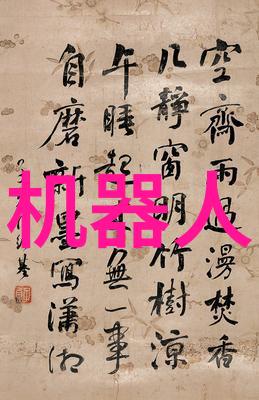 空齋雨過漫焚香
几靜窗明竹樹涼
午睡起來無一事
自磨新墨寫瀟湘
机器人